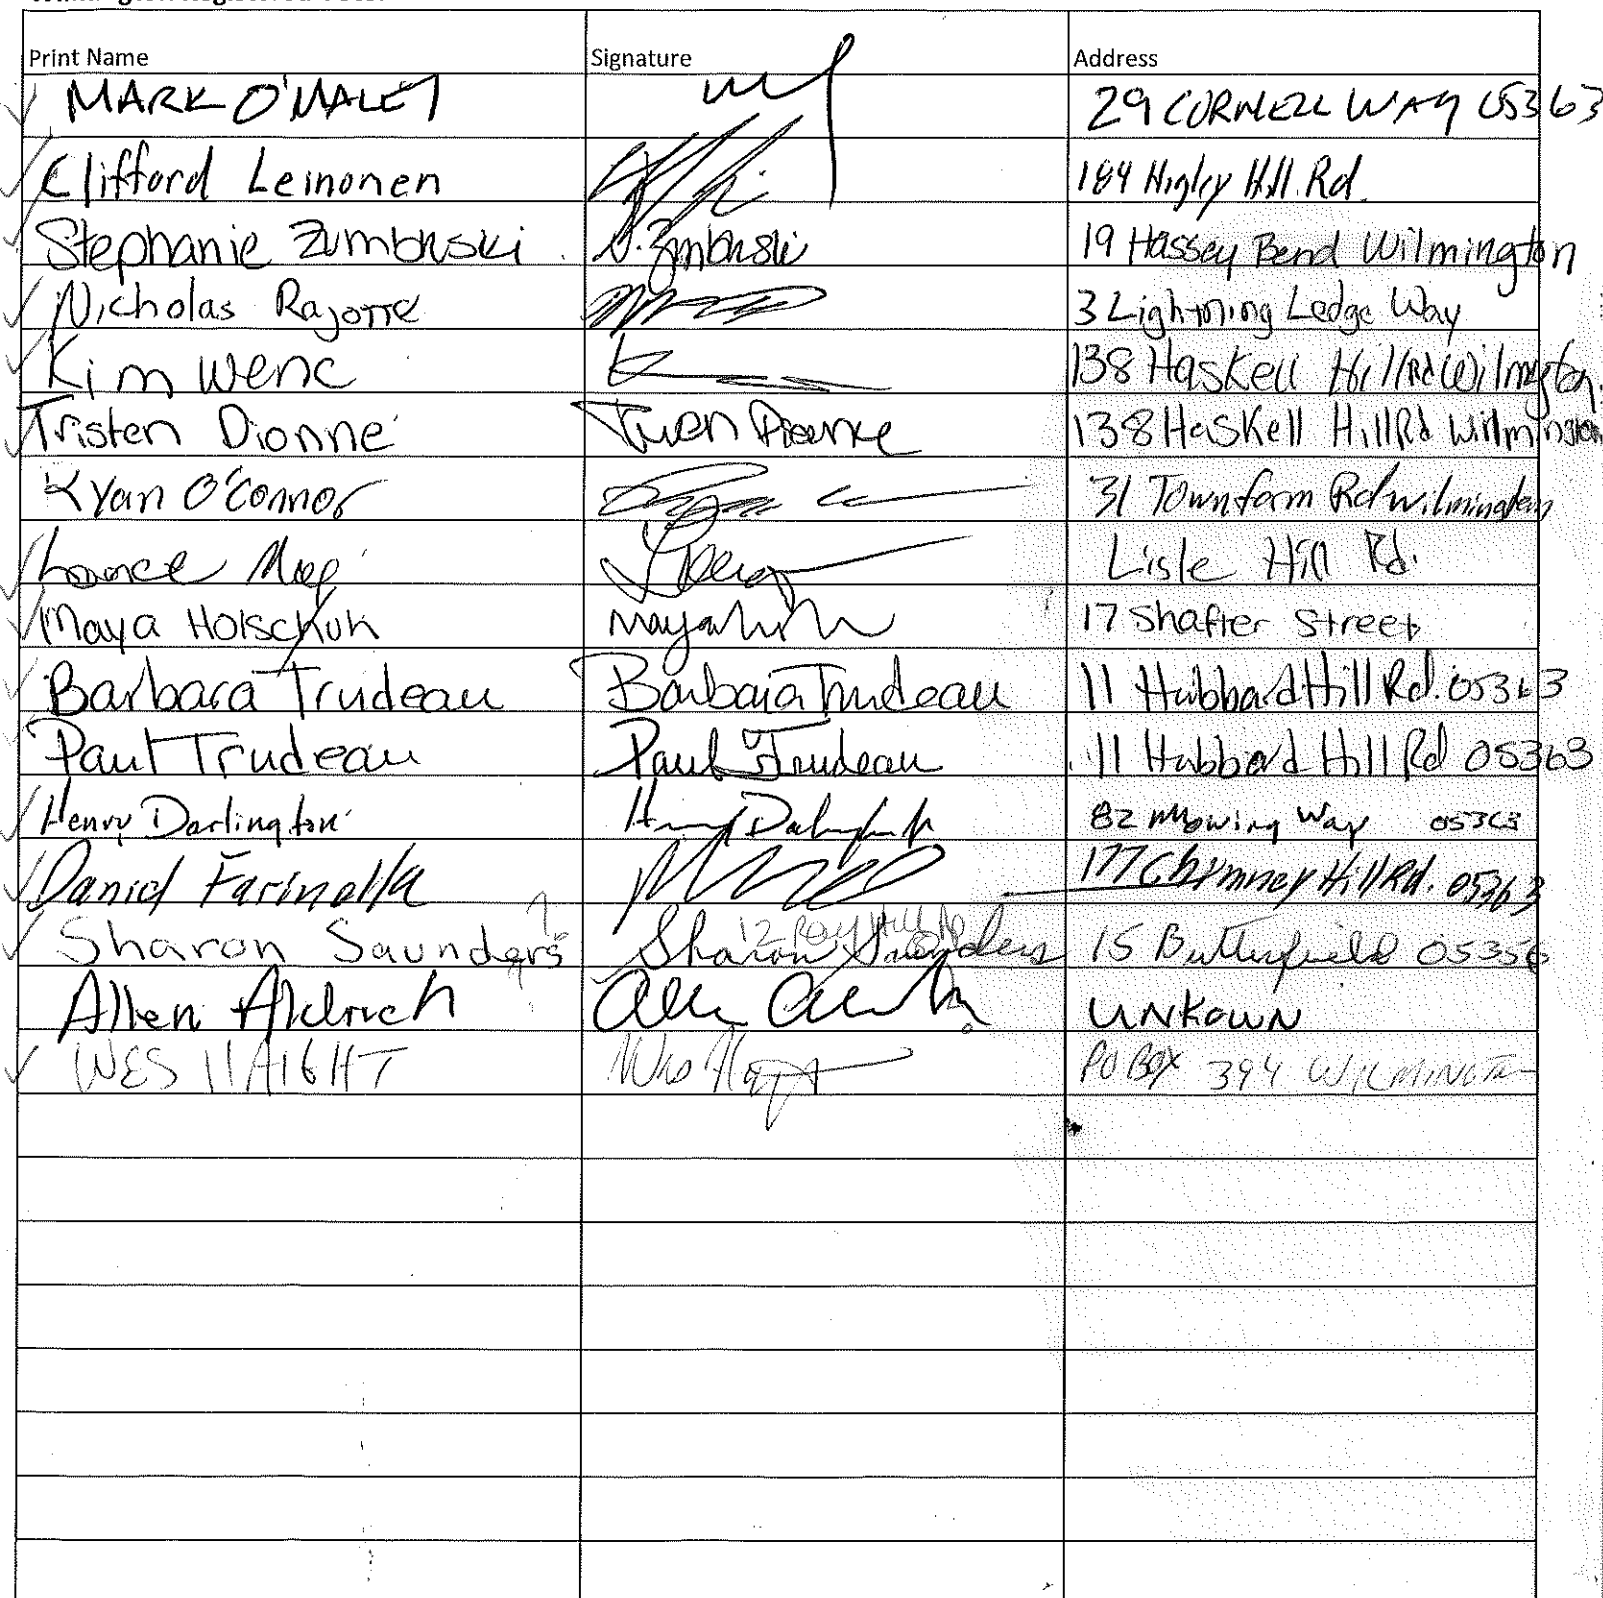 Print Name Signature Address
MARK O'MALEY 29 CORNELL WAY 05363
Clifford Leinonen 184 Higley Hill Rd.
Stephanie Zumbruski S. Zumbruski 19 Hassey Bend Wilmington
Nicholas Rajotte 3 Lightning Ledge Way
Kim Wenc 138 Haskell Hill Rd Wilmington
Tristen Dionne 138 Haskell Hill Rd Wilmington
Ryan O'Connor 31 Townfarm Rd Wilmington
Lisle Hill Rd.
Maya Holschuh 17 Shafter Street
Barbara Trudeau Barbara Trudeau 11 Hubbard Hill Rd. 05363
Paul Trudeau Paul Trudeau 11 Hubbard Hill Rd 05363
Henry Darlington 82 Mowing Way 05363
Daniel Farinella 177 Chimney Hill Rd. 05363
12 Ray Hill Rd
Sharon Saunders Sharon Saunders 15 Butterfield 05356
Allen Aldrich UNKOWN
WES HAIGHT Wes PO BOX 394 WILMINGTON